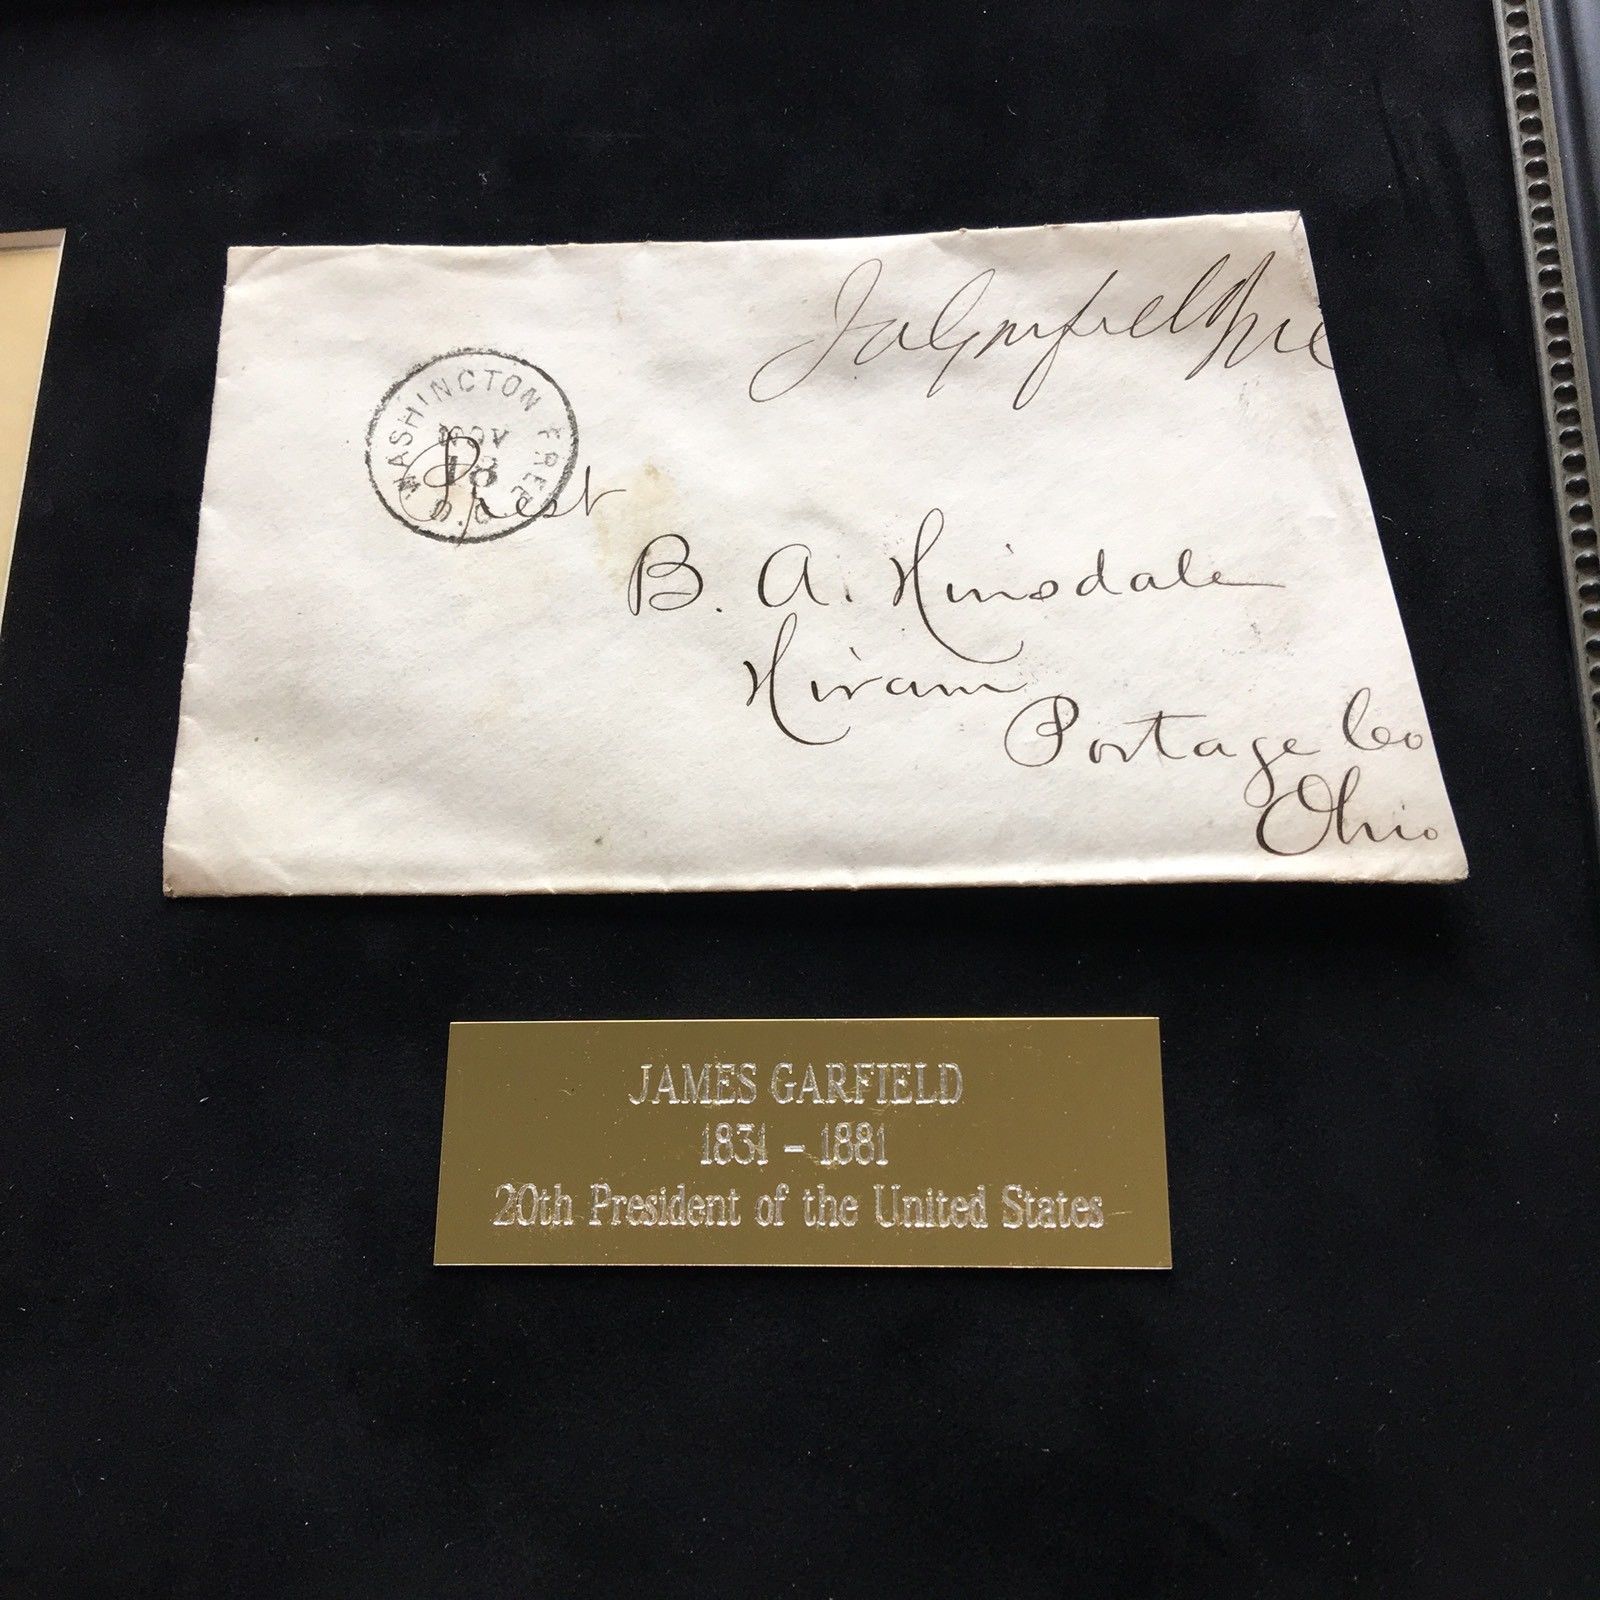 J A Garfield M C
WASHINGTON FREE D.C.
NOV
18
Prest
B. A. Hinsdale
Hiram
Portage Co
Ohio
JAMES GARFIELD
1831 - 1881
20th President of the United States